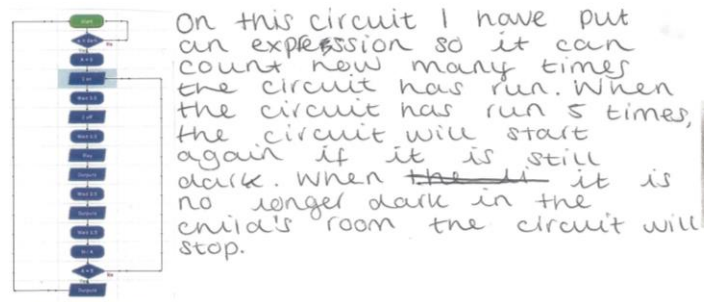 Start
No
Wait 1.0
Play
Outputs
Outputs
Outputs
No
On this circuit I have put
an expression so it can
count how many times
the circuit has run. When
the circuit has run 5 times,
the circuit will start
again if it is still
dark. When it is
no longer dark in the
child's room the circuit will
stop.